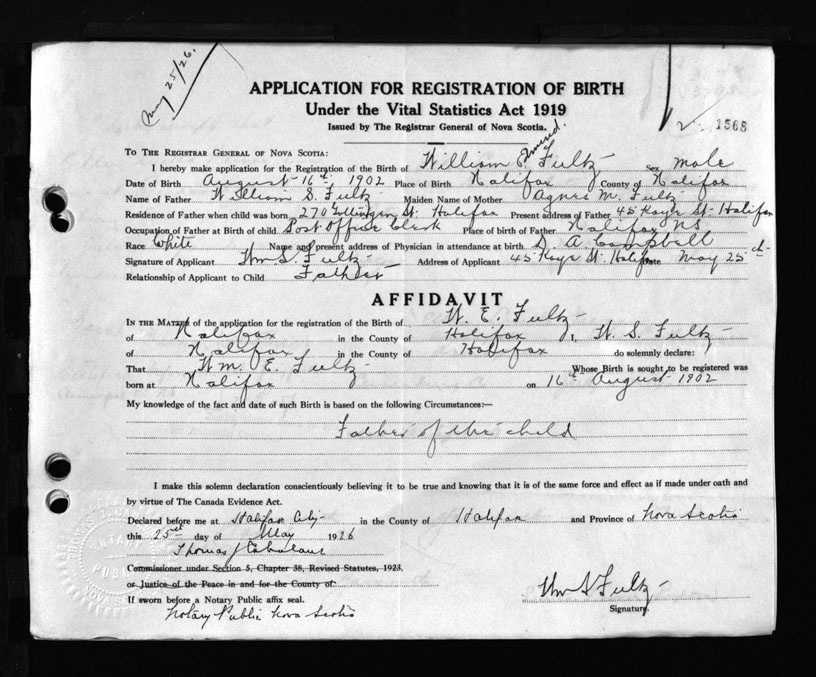 May 25/26.
APPLICATION FOR REGISTRATION OF BIRTH
Under the Vital Statistics Act 1919
Issued by The Registrar General of Nova Scotia.
1568
TO THE REGISTRAR GENERAL OF NOVA SCOTIA:
I hereby make application for the Registration of the Birth of William E. Fultz Sex male
Date of Birth August 16th, 1902 Place of Birth Halifax County of Halifax
Name of Father William S. Fultz Maiden Name of Mother Agnes M. Fultz
Residence of Father when child was born 270 St. Halifax Present address of Father 45 Kaye St. Halifax
Occupation of Father at Birth of child Post Office Clerk Place of birth of Father Halifax NS
Race White Name and present address of Physician in attendance at birth D. A. Campbell
Signature of Applicant Wm S. Fultz Address of Applicant 45 Kaye St. Halifax Date May 25th
Relationship of Applicant to Child Father
AFFIDAVIT
IN THE MATTER of the application for the registration of the Birth of W. E. Fultz
of Halifax in the County of Halifax I, W. S. Fultz
of Halifax in the County of Halifax do solemnly declare:
That Wm. E. Fultz Whose Birth is sought to be registered was
born at Halifax on 16th August 1902
My knowledge of the fact and date of such Birth is based on the following Circumstances:—
Father of the child
I make this solemn declaration conscientiously believing it to be true and knowing that it is of the same force and effect as if made under oath and
by virtue of The Canada Evidence Act.
Declared before me at Halifax City in the County of Halifax and Province of Nova Scotia
this 25th day of May 1926
Thomas J
Commissioner under Section 5, Chapter 38, Revised Statutes, 1923.
or Justice of the Peace in and for the County of:
If sworn before a Notary Public affix seal.
Notary Public Nova Scotia
Wm S Fultz
Signature.